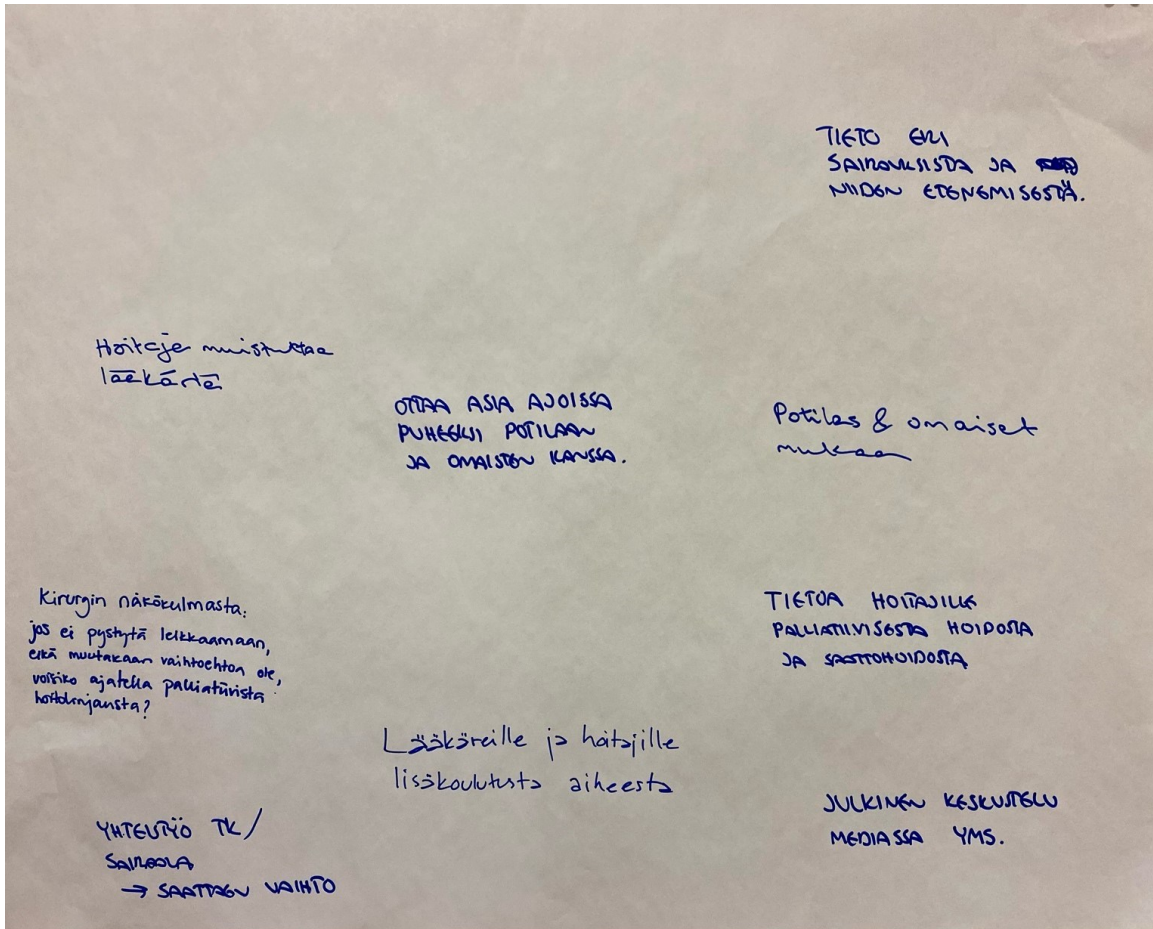 TIETO ERI
SAIRAUKSISTA JA
NIIDEN ETENEMISESTÄ.
Hoitaja muistuttaa
lääkäriä
OTTAA ASIA AJOISSA
PUHEEKSI POTILAAN
JA OMAISTEN KANSSA.
Potilas & omaiset
mukaan
Kirurgin näkökulmasta:
jos ei pystytä leikkaamaan,
eikä muutakaan vaihtoehtoa ole,
voisiko ajatella palliatiivista
hoitolinjausta?
TIETOA HOITAJILLE
PALLIATIIVISESTA HOIDOSTA
JA SAATTOHOIDOSTA
Lääkäreille ja hoitajille
lisäkoulutusta aiheesta
YHTEISTYÖ TK/
SAIRAALA
→ SAATTAEN VAIHTO
JULKINEN KESKUSTELU
MEDIASSA YMS.